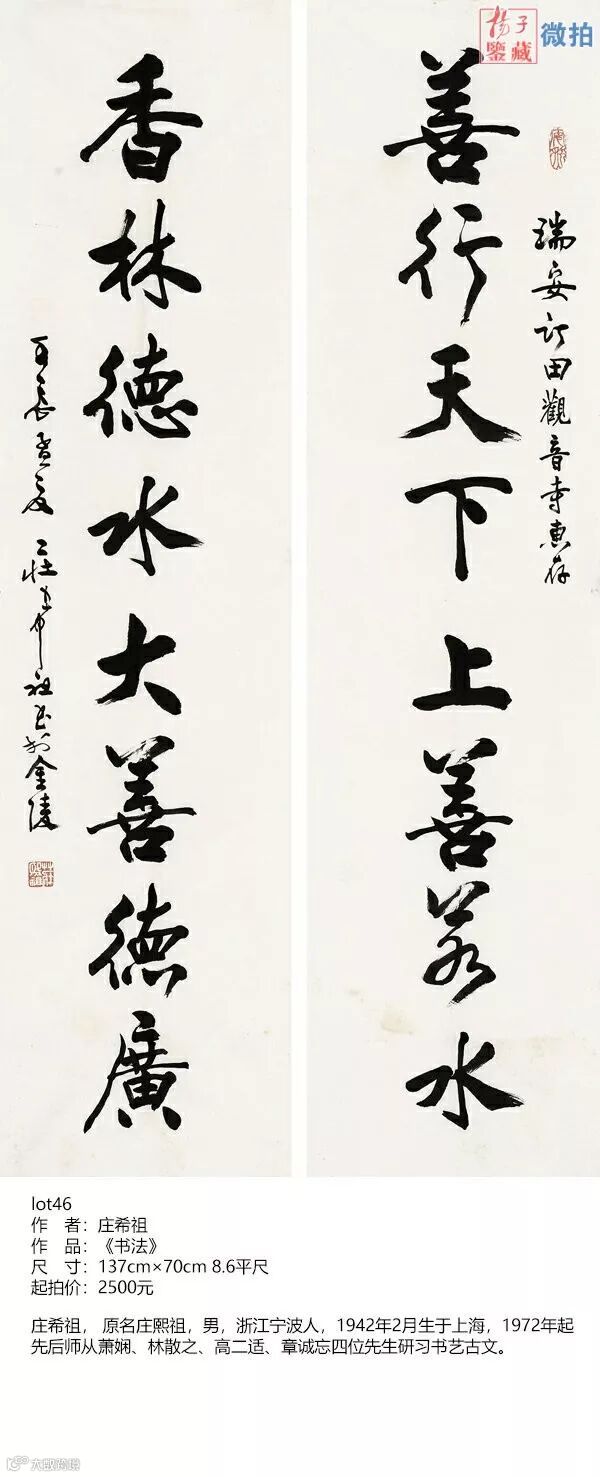 揚子
鑒藏
微拍
瑞安汀田觀音寺惠存
善行天下上善若水
香林德水大善德廣
壬辰孟夏 莊希祖書於金陵
lot46
作 者：庄希祖
作 品：《书法》
尺 寸：137cm×70cm 8.6平尺
起拍价：2500元
庄希祖， 原名庄熙祖，男，浙江宁波人，1942年2月生于上海，1972年起
先后师从萧娴、林散之、高二适、章诚忘四位先生研习书艺古文。